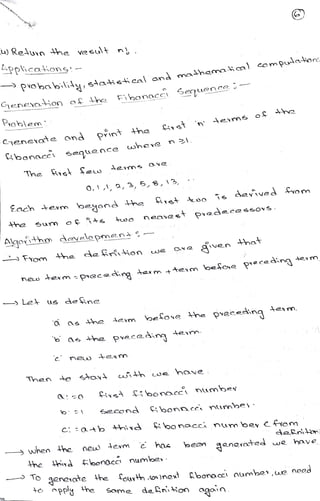 4) Return the result n!.
Applications:-
→ probability, statistical and mathematical computations
Generation of the Fibonacci Sequence:-
Problem:
Generate and print the first 'n' terms of the
fibonacci sequence where n≥1.
The first few terms are
0,1,1,2,3,5,8,13,
Each term beyond the first two is derived from
the sum of its two nearest predecessors.
Algorithm development:-
→ From the definition we are given that
new term = preceding term + term before preceding term
→ Let us define
'a' as the term before the preceding term.
'b' as the preceding term.
'c' new term
Then to start with we have
a:=0 first fibonacci number
b:=1 second fibonacci number.
c:=a+b third fibonacci number (from
definition
→ when the new term 'c' has been generated we have
the third fibonacci number.
→ To generate the fourth, or next fibonacci number, we need
to apply the same definition again